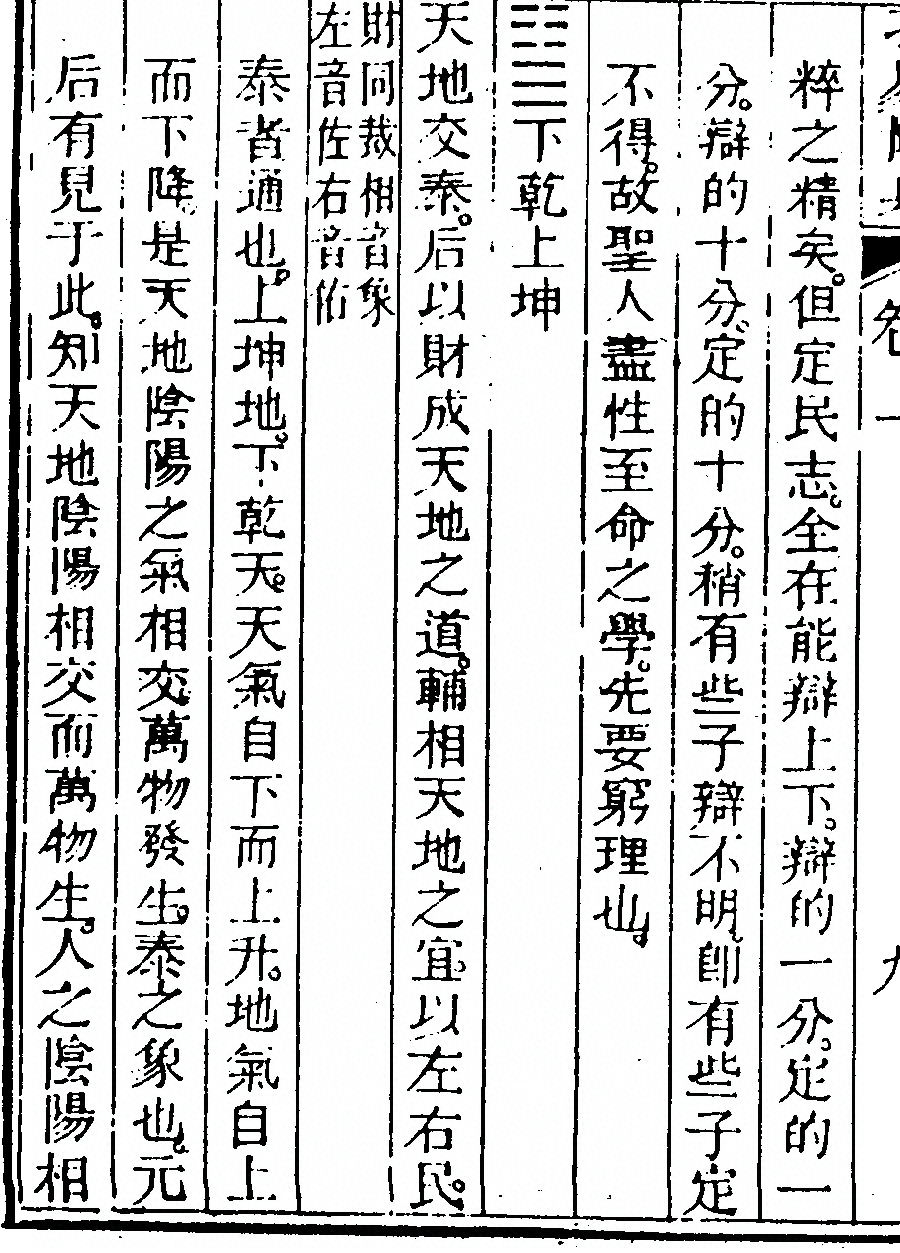 卷一 九
粹之精矣。但定民志。全在能辯上下。辯的一分。定的一
分。辯的十分。定的十分。稍有些子辯不明。卽有些子定
不得。故聖人盡性至命之學。先要窮理也。
䷊下乾上坤
天地交泰。后以財成天地之道。輔相天地之宜。以左右民。
財同裁相音象
左音佐右音佑
泰者通也。上坤地。下乾天。天氣自下而上升。地氣自上
而下降。是天地陰陽之氣相交。萬物發生。泰之象也。元
后有見于此。知天地陰陽相交而萬物生。人之陰陽相